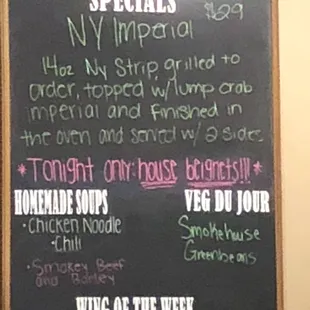 SPECIALS
$29
NY Imperial
14oz NY Strip grilled to
order, topped w/lump crab
imperial and finished in
the oven and served w/ 2 sides
*Tonight only: house beignets!!!*
HOMEMADE SOUPS
·Chicken Noodle
·Chili
·Smokey Beef
and Barley
VEG DU JOUR
Smokehouse
Greenbeans
WING OF THE WEEK